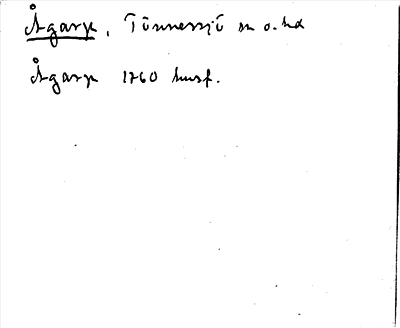 Ågarp, Tönnersjö sn o. hd
Ågarp 1760 husf.